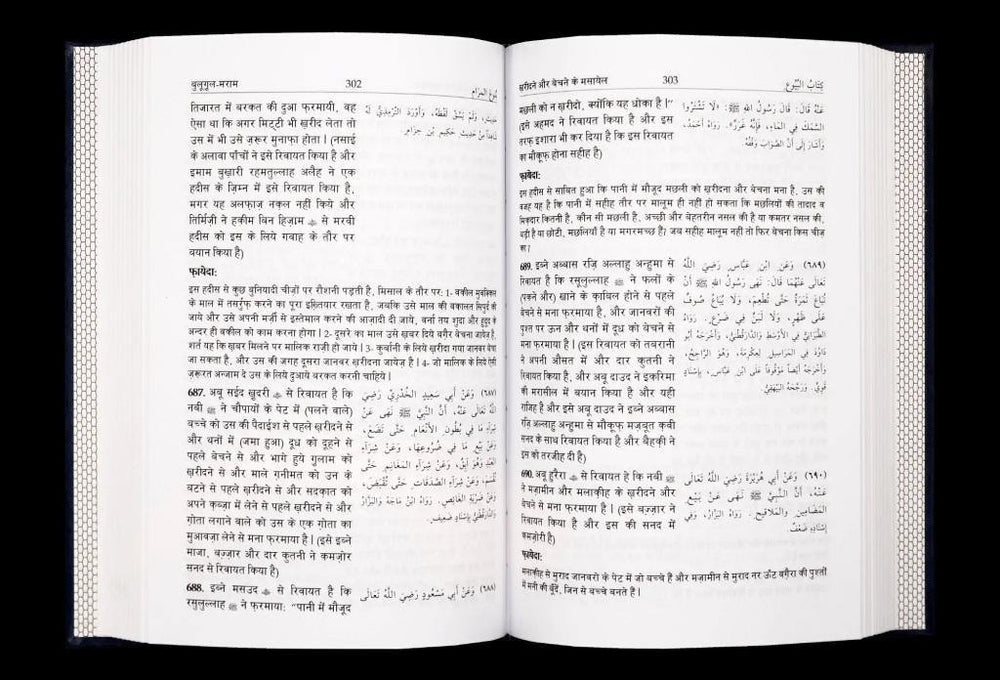 बुलूगुल-मराम 302 بُلُوغُ المَرَام
तिजारत में बरकत की दुआ फरमायी, वह
ऐसा था कि अगर मिट्टी भी ख़रीद लेता तो
उस में भी उसे ज़रूर मुनाफा होता। (नसाई
के अलावा पाँचों ने इसे रिवायत किया है और
इमाम बुख़ारी रहमतुल्लाह अलैह ने एक
हदीस के ज़िम्न में इसे रिवायत किया है,
मगर यह अलफाज़ नक़्ल नहीं किये और
तिर्मिज़ी ने हकीम बिन हिज़ाम ؓ से मरवी
हदीस को इस के लिये गवाह के तौर पर
बयान किया है)
حَدِيثٍ، وَلَمْ يَسُقْ لَفْظَهُ، وَأَوْرَدَ التِّرْمِذِيُّ لَهُ
شَاهِداً مِنْ حَدِيثِ حَكِيمِ بْنِ حِزَامٍ.
फायेदा:
इस हदीस से कुछ बुनियादी चीज़ों पर रौशनी पड़ती है, मिसाल के तौर पर: 1- वकील मुवक्किल
के माल में तसर्रुफ करने का पूरा इख़्तियार रखता है, जबकि उसे माल की वकालत सिपुर्द की
जाये और उसे अपनी मर्ज़ी से इस्तेमाल करने की आज़ादी दी जाये, वर्ना तय शुदा और हुदूद के
अन्दर ही वकील को काम करना होगा। 2- दूसरे का माल उसे ख़बर दिये बग़ैर बेचना जायेज़ है,
शर्त यह कि ख़बर मिलने पर मालिक राज़ी हो जाये। 3- कुर्बानी के लिये ख़रीदा गया जानवर बेचा
जा सकता है, और उस की जगह दूसरा जानवर ख़रीदना जायेज़ है। 4- जो मालिक के लिये ऐसी
ज़रूरत अन्जाम दे उस के लिये दुआये बरकत करनी चाहिये।
687. अबू सईद ख़ुदरी ؓ से रिवायत है कि
नबी ﷺ ने चौपायों के पेट में (पलने वाले)
बच्चे को उस की पैदाईश से पहले ख़रीदने से
और थनों में (जमा हुआ) दूध को दूहने से
पहले बेचने से और भागे हुये गुलाम को
ख़रीदने से और माले ग़नीमत को उन के
बटने से पहले ख़रीदने से और सदक़ात को
अपने क़ब्ज़ा में लेने से पहले ख़रीदने से और
ग़ोता लगाने वाले को उस के एक ग़ोता का
मुआवज़ा लेने से मना फरमाया है। (इसे इब्ने
माजा, बज़्ज़ार और दार कुतनी ने कमज़ोर
सनद से रिवायत किया है)
(٦٨٧) وَعَنْ أَبِي سَعِيدٍ الخُدْرِيِّ رَضِيَ
اللَّهُ تَعَالَى عَنْهُ، أَنَّ النَّبِيَّ ﷺ نَهَى عَنْ
شِرَاءِ مَا فِي بُطُونِ الأَنْعَامِ حَتَّى تَضَعَ،
وَعَنْ بَيْعِ مَا فِي ضُرُوعِهَا، وَعَنْ شِرَاءِ
العَبْدِ وَهُوَ آبِقٌ، وَعَنْ شِرَاءِ المَغَانِمِ حَتَّى
تُقْسَمَ، وَعَنْ شِرَاءِ الصَّدَقَاتِ حَتَّى تُقْبَضَ،
وَعَنْ ضَرْبَةِ الغَائِصِ. رَوَاهُ ابْنُ مَاجَهْ وَالبَزَّارُ
وَالدَّارَقُطْنِيُّ بِإِسْنَادٍ ضَعِيفٍ.
688. इब्ने मसउद ؓ से रिवायत है कि
रसूलुल्लाह ﷺ ने फरमाया: “पानी में मौजूद
(٦٨٨) وَعَنْ أَبِي مَسْعُودٍ رَضِيَ اللَّهُ تَعَالَى
ख़रीदने और बेचने के मसायेल 303 كِتَابُ البُيُوعِ
मछली को न ख़रीदो, क्योंकि यह धोका है।”
(इसे अहमद ने रिवायत किया है और इस
तरफ इशारा भी कर दिया है कि इस रिवायत
का मौक़ूफ होना सहीह है)
عَنْهُ قَالَ: قَالَ رَسُولُ اللهِ ﷺ: «لَا تَشْتَرُوا
السَّمَكَ فِي المَاءِ، فَإِنَّهُ غَرَرٌ». رَوَاهُ أَحْمَدُ،
وَأَشَارَ إِلَى أَنَّ الصَّوَابَ وَقْفُهُ
फायेदा:
इस हदीस से साबित हुआ कि पानी में मौजूद मछली को ख़रीदना और बेचना मना है, उस की
वजह यह है कि पानी में सहीह तौर पर मालूम ही नहीं हो सकता कि मछलियों की तादाद व
मिक़दार कितनी है, कौन सी मछली है, अच्छी और बेहतरीन नसल की है या कमतर नसल की,
बड़ी है या छोटी, मछलियाँ है या मगरमच्छ है? जब सहीह मालूम नहीं तो फिर बेचना किस चीज़
का?
689. इब्ने अब्बास रज़ि अल्लाहु अन्हुमा से
रिवायत है कि रसूलुल्लाह ﷺ ने फलों के
(पकने और) खाने के क़ाबिल होने से पहले
बेचने से मना फरमाया है, और जानवरों की
पुश्त पर ऊन और थनों में दूध को बेचने से
मना फरमाया है। (इस रिवायत को तबरानी
ने अपनी औसत में और दार कुतनी ने
रिवायत किया है, और अबू दाउद ने इकरिमा
की मरासील में बयान किया है और यही
राजिह है और इसे अबू दाउद ने इब्ने अब्बास
रज़ि अल्लाहु अन्हुमा से मौक़ूफ मज़बूत क़वी
सनद के साथ रिवायत किया है और बैहक़ी ने
इस को तरजीह दी है)
(٦٨٩) وَعَنِ ابْنِ عَبَّاسٍ رَضِيَ اللَّهُ
تَعَالَى عَنْهُمَا قَالَ: نَهَى رَسُولُ اللهِ ﷺ أَنْ
تُبَاعَ ثَمَرَةٌ حَتَّى تُطْعَمَ، وَلَا يُبَاعُ صُوفٌ
عَلَى ظَهْرٍ، وَلَا لَبَنٌ فِي ضَرْعٍ. رَوَاهُ
الطَّبَرَانِيُّ فِي الأَوْسَطِ وَالدَّارَقُطْنِيُّ، وَأَخْرَجَهُ أَبُو
دَاوُدَ فِي المَرَاسِيلِ لِعِكْرِمَةَ، وَهُوَ الرَّاجِحُ،
وَأَخْرَجَهُ أَيْضاً مَوْقُوفاً عَلَى ابْنِ عَبَّاسٍ، بِإِسْنَادٍ
قَوِيٍّ. وَرَجَّحَهُ البَيْهَقِيُّ
690. अबू हुरैरा ؓ से रिवायत है कि नबी ﷺ
ने मज़ामीन और मलाक़ीह के ख़रीदने और
बेचने से मना फरमाया है। (इसे बज़्ज़ार ने
रिवायत किया है और इस की सनद में
कमज़ोरी है)
(٦٩٠) وَعَنْ أَبِي هُرَيْرَةَ رَضِيَ اللَّهُ تَعَالَى
عَنْهُ، أَنَّ النَّبِيَّ ﷺ نَهَى عَنْ بَيْعِ
المَضَامِينِ وَالمَلَاقِيحِ. رَوَاهُ البَزَّارُ، وَفِي
إِسْنَادِهِ ضَعْفٌ
फायेदा:
मलाक़ीह से मुराद जानवरों के पेट में जो बच्चे हैं और मज़ामीन से मुराद नर ऊँट वग़ैरा की पुश्तों
में मनी की बूँदें, जिन से बच्चे बनते हैं।